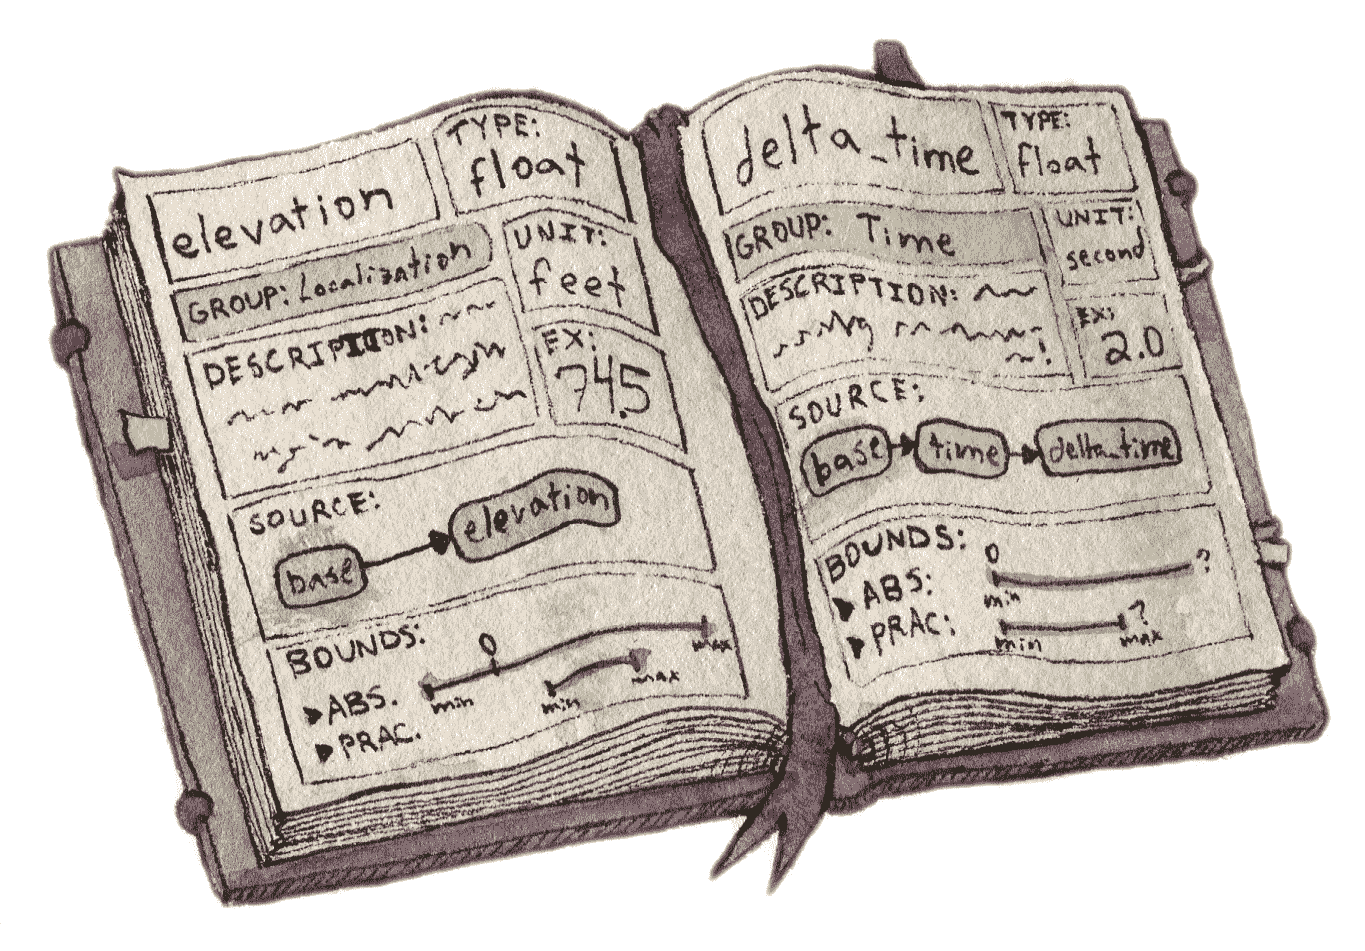 elevation
TYPE:
float
GROUP: Localization
UNIT:
feet
DESCRIPTION:
EX:
74.5
SOURCE:
base
elevation
BOUNDS:
0
ABS.
min
max
PRAC.
min
max
delta_time
TYPE:
float
GROUP: Time
UNIT:
second
DESCRIPTION:
EX:
2.0
SOURCE:
base
time
delta_time
BOUNDS:
0
?
ABS:
min
PRAC:
?
min
max